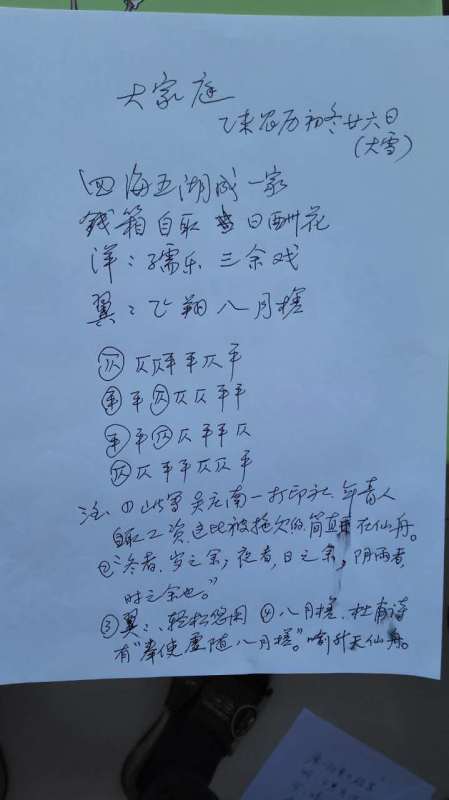 大家庭
乙未农历初冬廿六日
(大雪)
四海五湖成一家
钱箱自取日酬花
洋：孺乐三余戏
翼：飞翔八月槎
仄仄仄平平仄平
平平仄仄仄平平
平平仄仄平平仄
仄仄平平仄仄平
注①此写吴元南一打印社，年青人
自取工资，这比被拖欠的，简直花仙舟。
②"冬者，岁之余，夜者，日之余，阴雨者，
时之余也。"
③翼：轻松悠闲④八月槎，杜甫诗
有"奉使虚随八月槎。"喻升天仙舟。